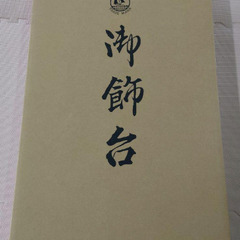 御飾台